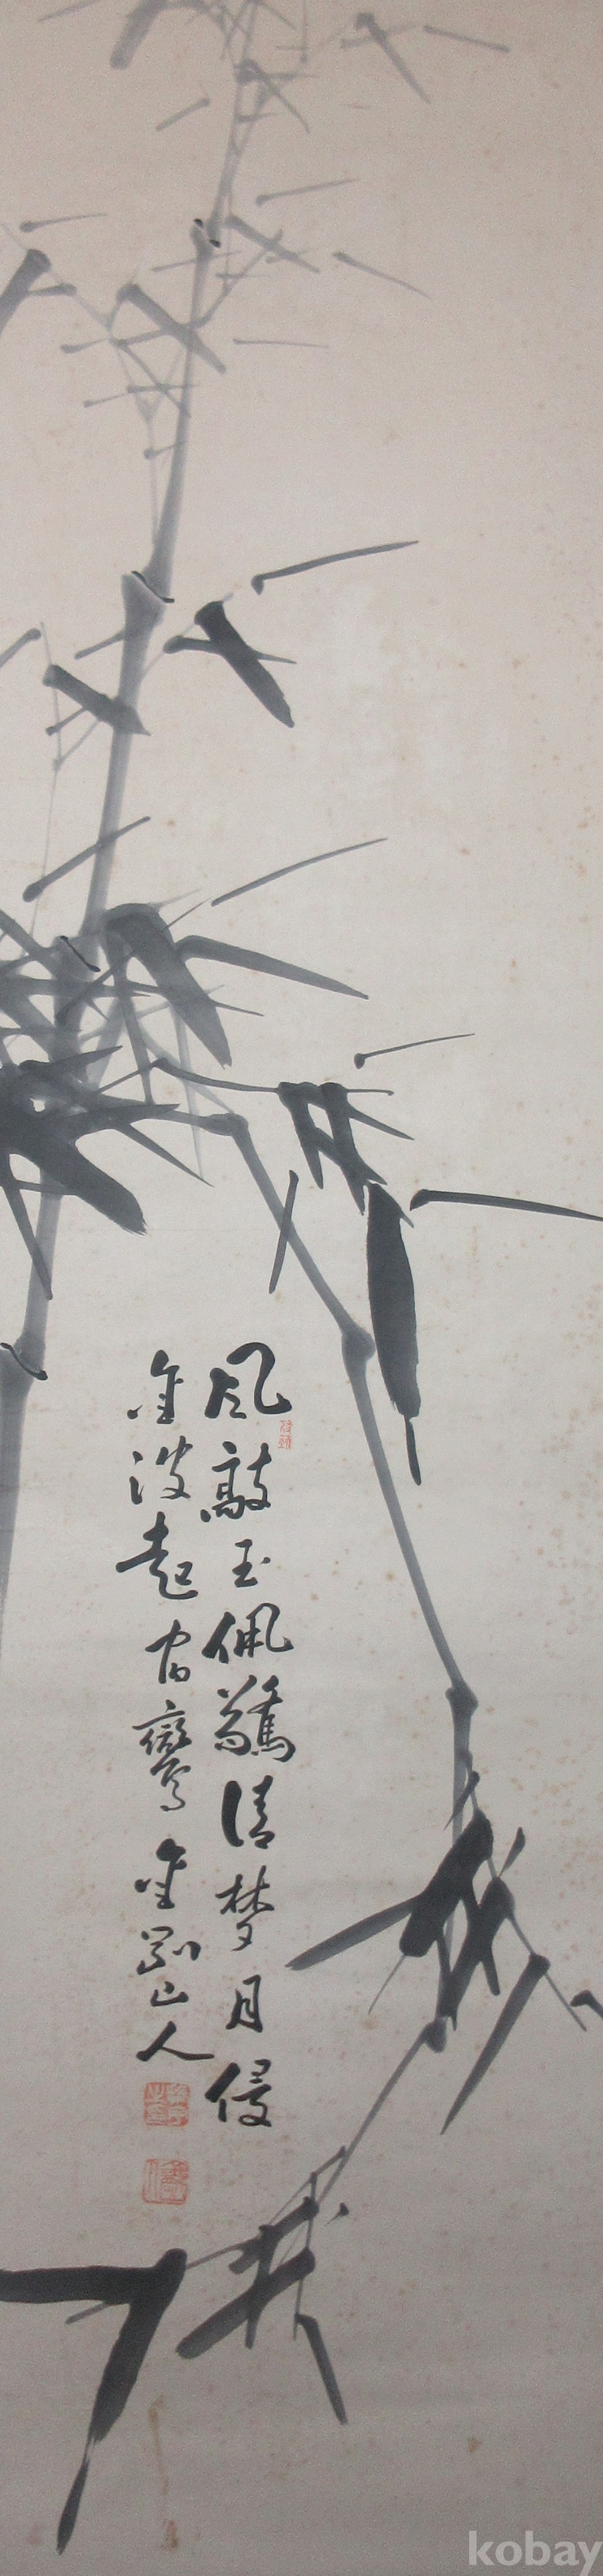 風敲玉佩驚清夢月侵
金波起宿鸞 金剛山人
kobay